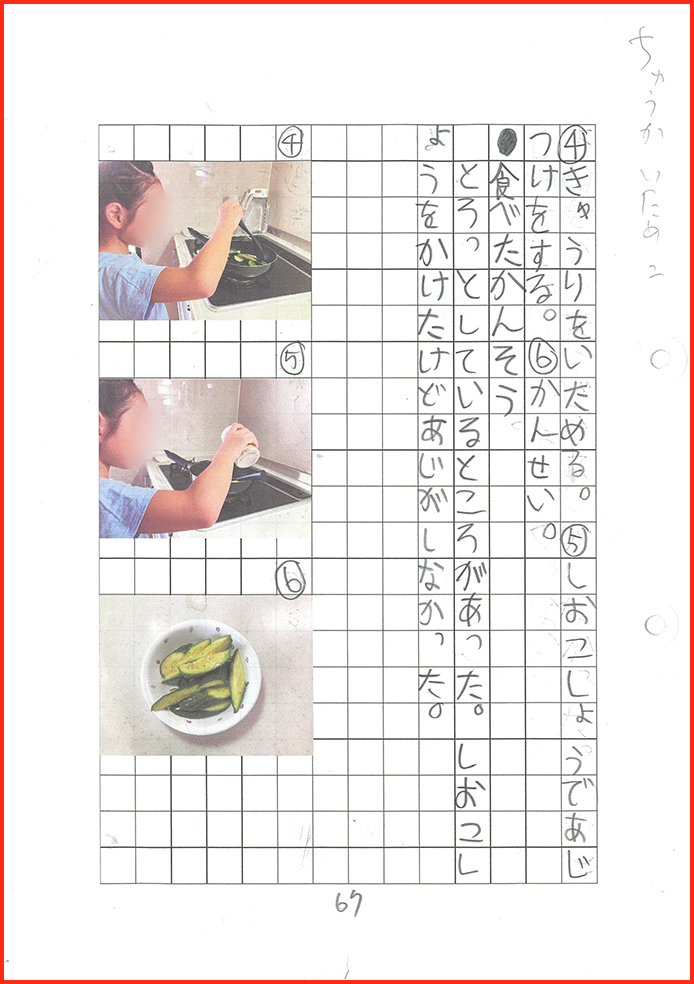 ちゅうかいため2
④きゅうりをいためる。⑤しおこしょうであじ
つけをする。⑥かんせい。
●食べたかんそう
とろっとしているところがあった。しおこし
ょうをかけたけどあじがしなかった。
④
⑤
⑥
67